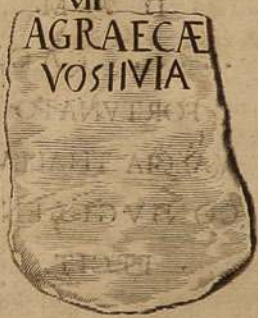 VII
AGRAECÆ
VOSIIVIA